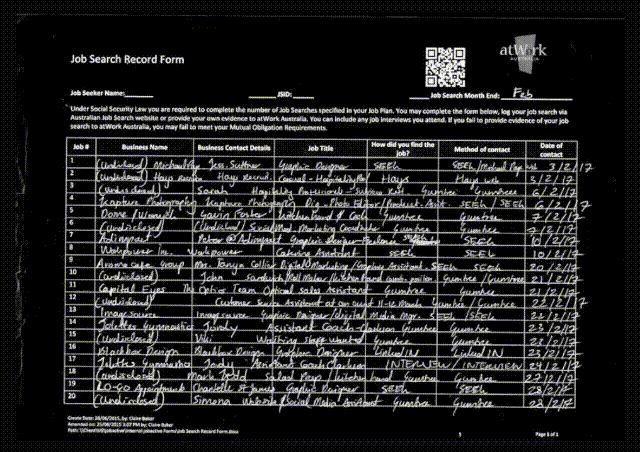 atWork
AUSTRALIA
Job Search Record Form
Job Seeker Name: JSID: Job Search Month End: Feb
Under Social Security Law you are required to complete the number of Job Searches specified in your Job Plan. You may complete the form below, log your job search via
Australian Job Search website or provide your own evidence to atWork Australia. You can include any job interviews you attend. If you fail to provide evidence of your job
search to atWork Australia, you may fail to meet your Mutual Obligation Requirements.
Job # Business Name Business Contact Details Job Title How did you find the job? Method of contact Date of contact
1 (Undisclosed) Jess Suttner Graphic Designer SEEK SEEK 3/2/17
2 (Undisclosed) Hays Hays Recruit. Casual - Hospitality Hays Hays 3/2/17
3 (Undisclosed) Sarah Hospitality Gumtree Gumtree 6/2/17
4 Kapture Photography Kapture Photography Photo Editor/Product SEEK SEEK 6/2/17
5 Gavin Foster Kitchen hand & Cook Gumtree Gumtree 7/2/17
6 (Undisclosed) (Undisclosed) Social Med. Marketing Coordinator Gumtree Gumtree 7/2/17
7 Adimpact Peter @ Adimpact Graphic Designer SEEK 10/2/17
8 Workpower Inc. Workpower Catering Assistant SEEK SEEK 10/2/17
9 Aroma Cafe Group Ms. Tanya Collier Digital Marketing/Graphic Assistant SEEK SEEK 20/2/17
10 (Undisclosed) John Sandwich Gumtree Gumtree 21/2/17
11 Capital Eyes The Optics Team Optical Sales Assistant Gumtree Gumtree 21/2/17
12 (Undisclosed) Customer Service Assistant at an event 11-12 March Gumtree Gumtree 22/2/17
13 Imagesource Imagesource Graphic Designer/digital Media Mgr. SEEK SEEK 22/2/17
14 Jolettes Gymnastics Jordy Assistant Coach Gumtree Gumtree 23/2/17
15 (Undisclosed) Viki Waitring Staff wanted Gumtree Gumtree 23/2/17
16 Blackbox Design Blackbox Design Graphic Designer Linked IN Linked IN 23/2/17
17 Jolettes Gymnastics Assistant Coach INTERVIEW INTERVIEW 24/2/17
18 (Undisclosed) Mark Todd Salad Prep/Kitchen hand Gumtree Gumtree 27/2/17
19 LO-GO Appointments Chantelle St James Graphic Designer SEEK SEEK 28/2/17
20 (Undisclosed) Simona Website/Social Media Assistant Gumtree Gumtree 28/2/17
Create Date: 26/06/2015, by: Claire Baker
Amended on: 25/08/2015 3:07 PM by: Claire Baker
Page 1 of 1